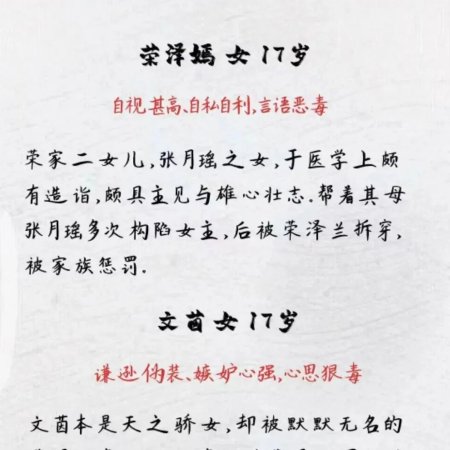 荣泽嫣 女 17岁
自视甚高、自私自利,言语恶毒
荣家二女儿,张月瑶之女,于医学上颇
有造诣,颇具主见与雄心壮志.帮着其母
张月瑶多次构陷女主,后被荣泽兰拆穿,
被家族惩罚.
文茵 女 17岁
谦逊伪装、嫉妒心强,心思狠毒
文茵本是天之骄女,却被默默无名的